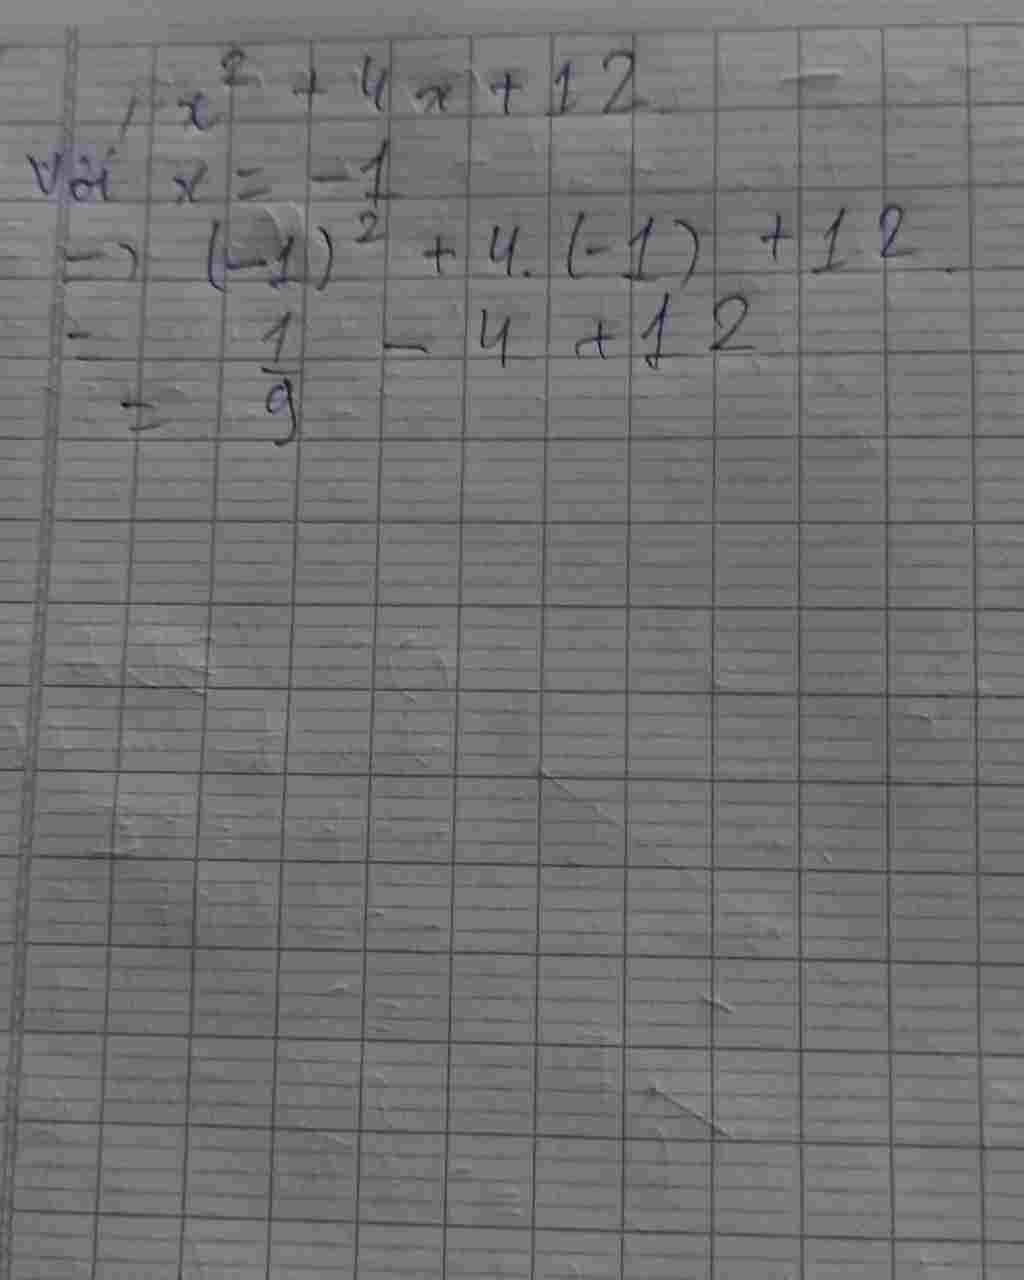 x² + 4x + 12
Với x = -1
=> (-1)² + 4. (-1) + 12
= 1 - 4 + 12
= 9